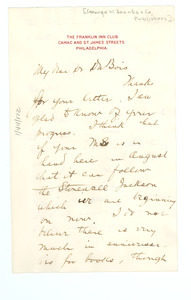 THE FRANKLIN INN CLUB
CAMAC AND ST JAMES STREETS
PHILADELPHIA
My dear Dr DuBois
Thanks
for your letter. I am
glad to know of your
progress. I think that
if your MS is in
hand here in August
that it can follow
the Stonewall Jackson
which we are beginning
on now. I do not
believe there is very
much in anniversar-
ies for books, though